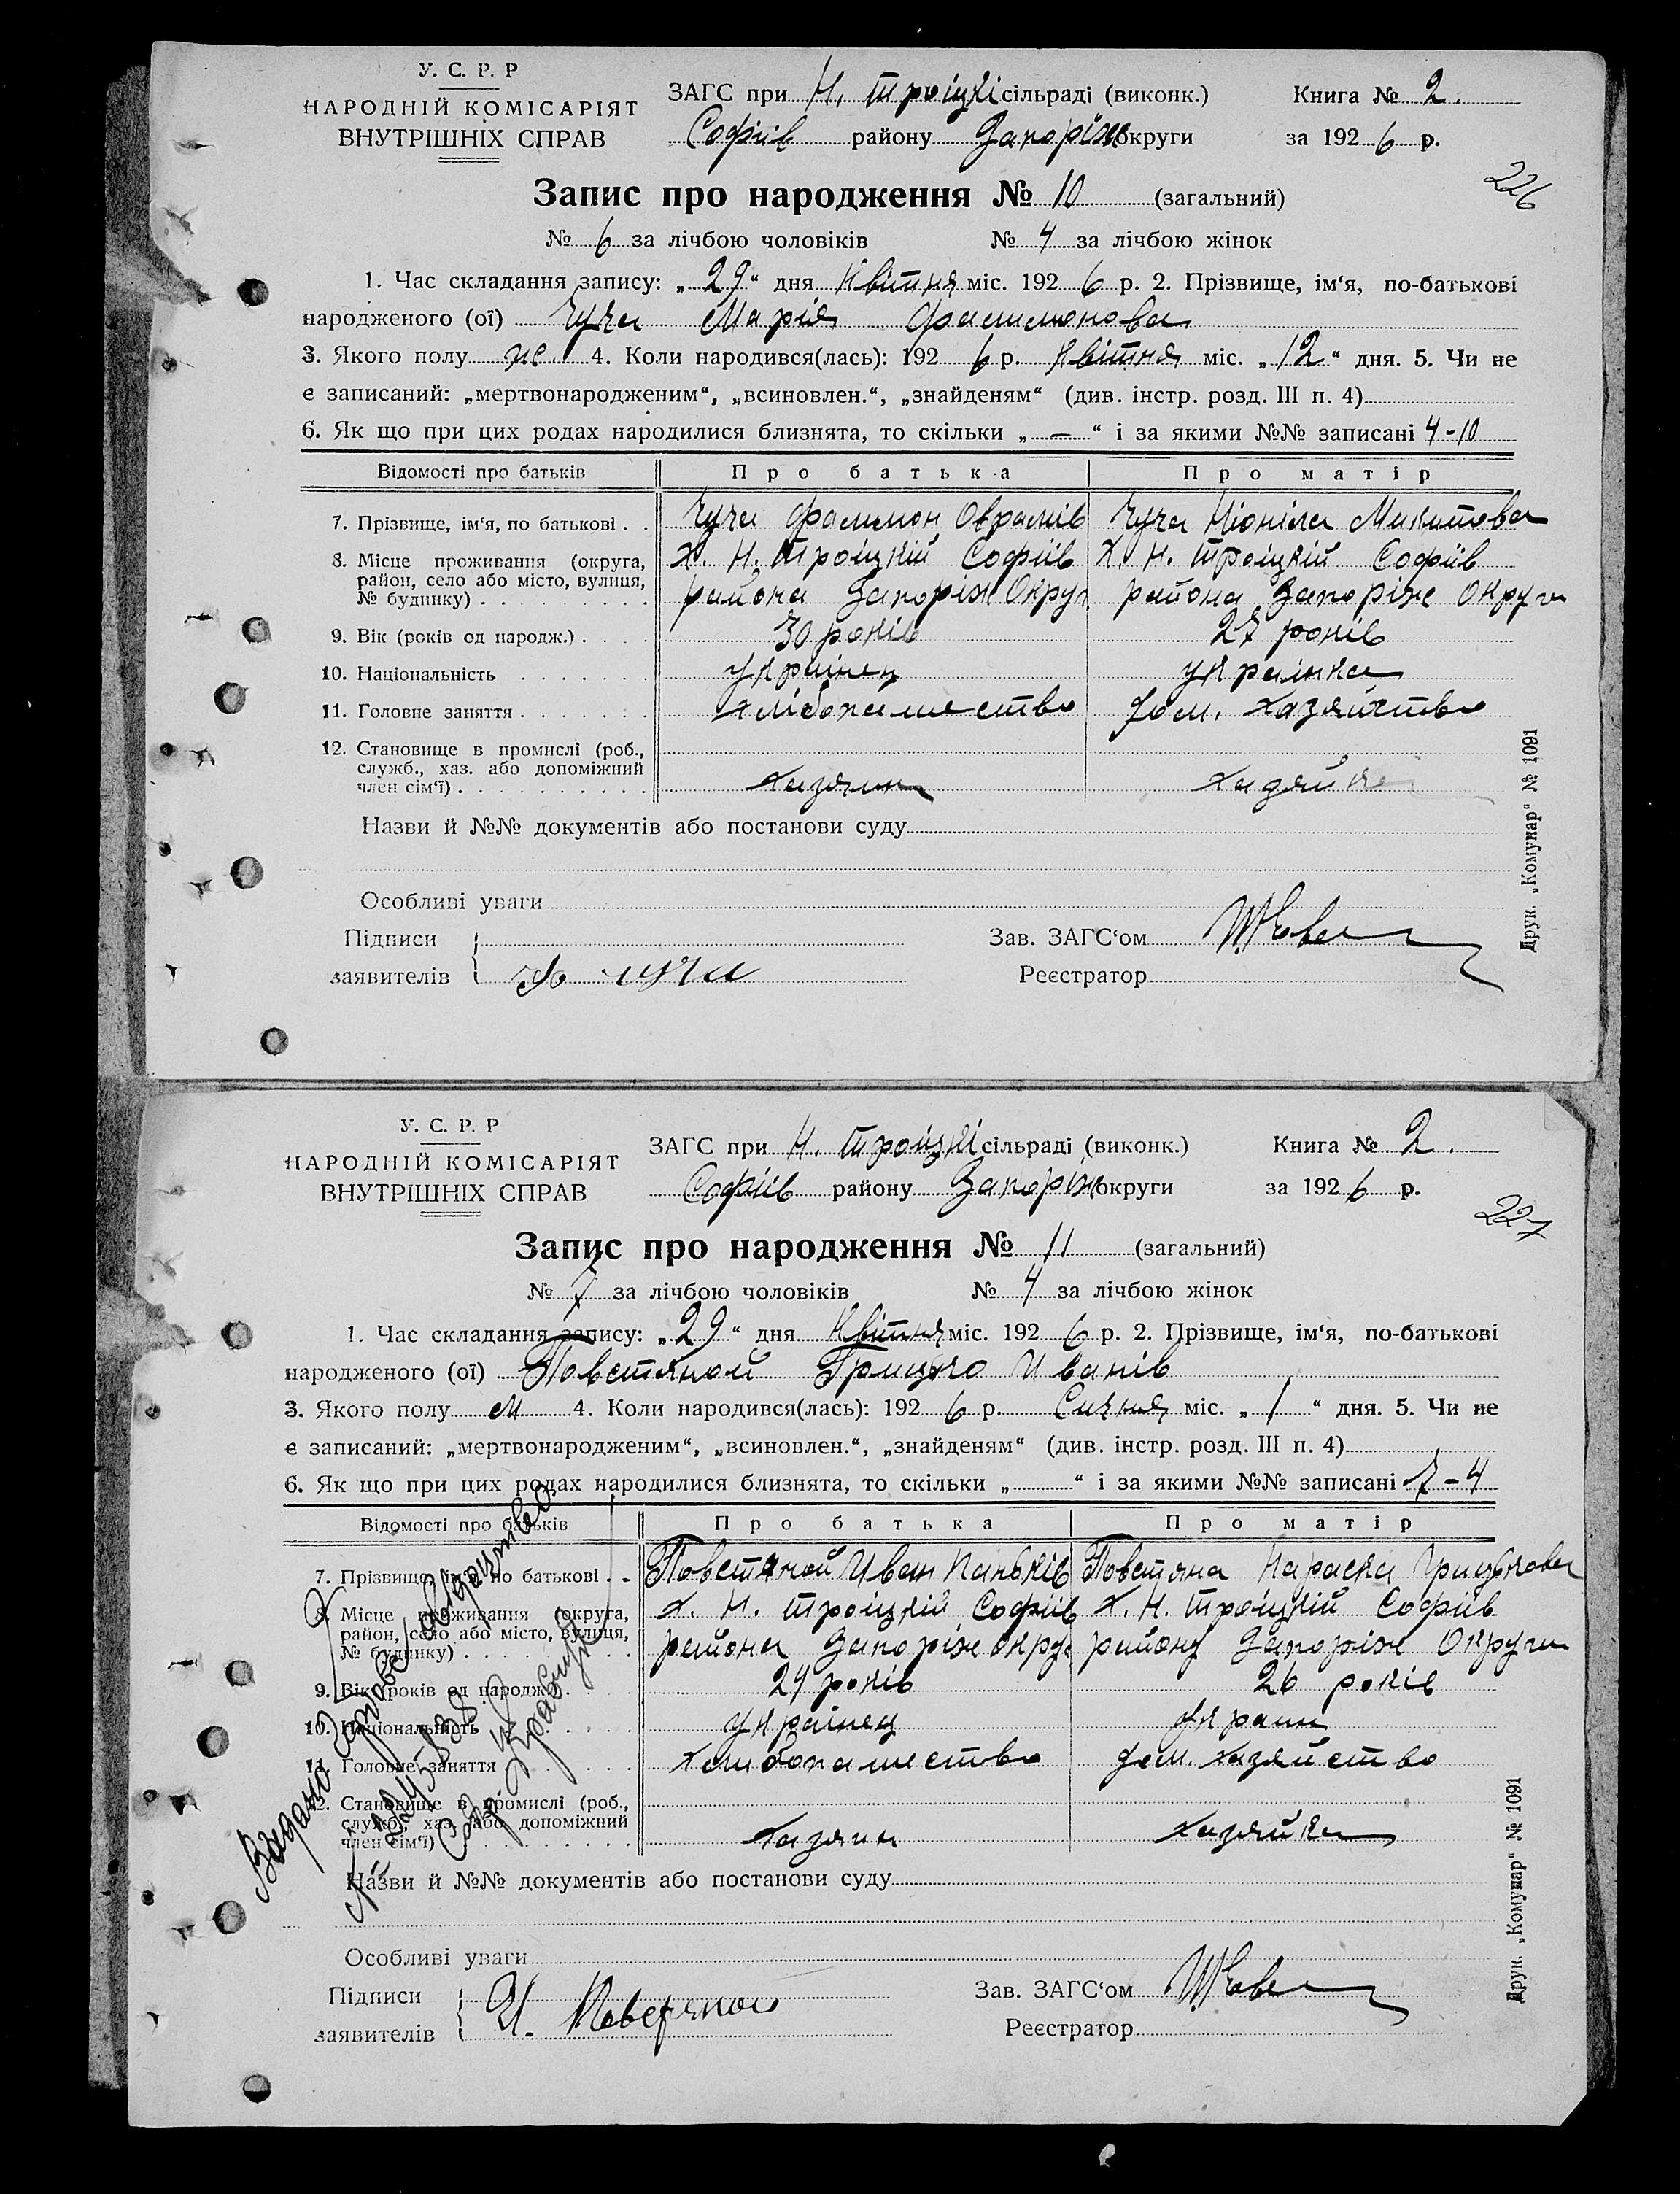 У. С. Р. Р
НАРОДНІЙ КОМІСАРІЯТ
ВНУТРІШНІХ СПРАВ
ЗАГС при Н. Троіцкі сільраді (виконк.)
Софіів району Запоріж округи
Книга № 2.
за 1926 р.
226
Запис про народження № 10 (загальний)
№ 6 за лічбою чоловіків № 4 за лічбою жінок
1. Час складання запису: „29“ дня Квітня міс. 1926 р. 2. Прізвище, ім‘я, по-батькові
народженого (ої) Чуча Марія Филимонова
3. Якого полу ж. 4. Коли народився(лась): 1926 р. Квітня міс. „12“ дня. 5. Чи не
є записаний: „мертвонародженим“, „всиновлен.“, „знайденям“ (див. інстр. розд. III п. 4)
6. Як що при цих родах народилися близнята, то скільки „—“ і за якими №№ записані 4-10
Відомості про батьків Про батька Про матір
7. Прізвище, ім‘я, по батькові . . Чуча Филимон Оврамів Чуча Микитова
8. Місце проживання (округа, х. Н. Троіцкій Софіів х. Н. Троіцкій Софіів
район, село або місто, вулиця, района Запоріж Округ района Запоріж Округи
№ будинку)
9. Вік (років од народж.) 30 років 27 років
10. Національність украінец украінка
11. Головне заняття хлібопашество дом. хазяйство
12. Становище в промислі (роб.,
служб., хаз. або допоміжний хазяин хазяйка
член сім‘ї)
Назви й №№ документів або постанови суду
Особливі уваги
Підписи
заявителів Чуча
Зав. ЗАГС‘ом
Реєстратор
Друк. „Комунар“ № 1091
У. С. Р. Р
НАРОДНІЙ КОМІСАРІЯТ
ВНУТРІШНІХ СПРАВ
ЗАГС при Н. Троіцкі сільраді (виконк.)
Софіів району Запоріж округи
Книга № 2.
за 1926 р.
227
Запис про народження № 11 (загальний)
№ 7 за лічбою чоловіків № 4 за лічбою жінок
1. Час складання запису: „29“ дня Квітня міс. 1926 р. 2. Прізвище, ім‘я, по-батькові
народженого (ої) Повстяной Грицько Иванів
3. Якого полу м 4. Коли народився(лась): 1926 р. Січня міс. „1“ дня. 5. Чи не
є записаний: „мертвонародженим“, „всиновлен.“, „знайденям“ (див. інстр. розд. III п. 4)
6. Як що при цих родах народилися близнята, то скільки „ “ і за якими №№ записані 7-4
Відомості про батьків Про батька Про матір
7. Прізвище, ім‘я, по батькові . . Повстяной Иван Паньків Повстяна Параска Грицькова
8. Місце проживання (округа, х. Н. Троіцкій Софіів х. Н. Троіцкій Софіів
район, село або місто, вулиця, района Запоріж округ району Запоріж Округи
№ будинку)
9. Вік (років од народж.) 24 років 26 років
10. Національність украінец украин
11. Головне заняття хлибопашество дом. хазяйство
12. Становище в промислі (роб.,
служб., хаз. або допоміжний хазяин хазяйка
член сім‘ї)
Назви й №№ документів або постанови суду
Особливі уваги
Підписи
заявителів И. Повстяной
Зав. ЗАГС‘ом
Реєстратор
Друк. „Комунар“ № 1091